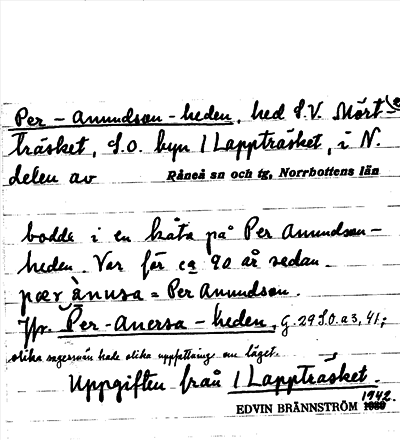 Per-Anundson-heden, hed S.V. Mört-
träsket, S.O. byn 1 Lappträsket, i N.
delen av Råneå sn och tg, Norrbottens län
bodde i en kåta på Per Anundson-
heden. Var för ca 90 år sedan.
pær ànusa = Per Anundson.
Jfr. Per-Anersa-heden, G. 29 S.O. a 3, 41;
olika sagesmän hade olika uppfattning om läget.
Uppgiften från 1 Lappträsket
1942.
EDVIN BRÄNNSTRÖM